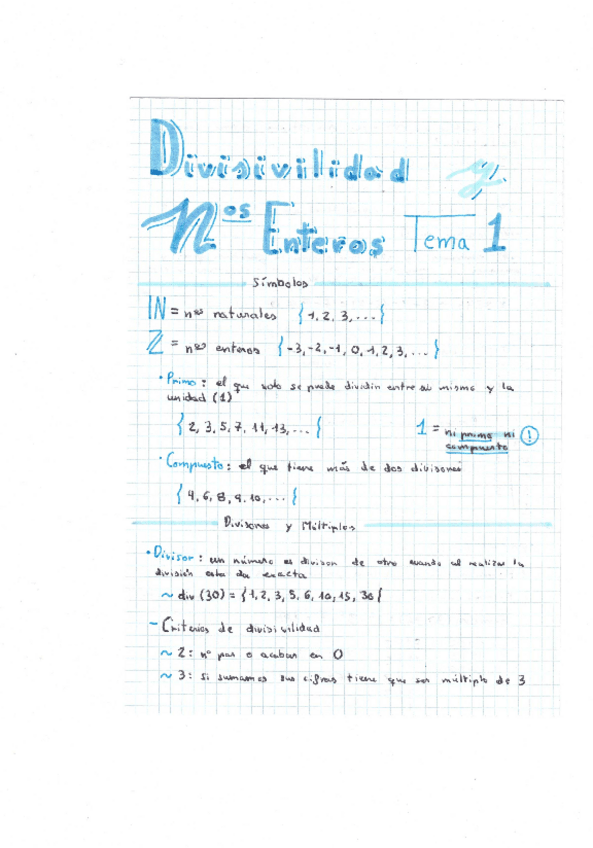 Divisivilidad y
Nos Enteros Tema 1
Símbolos
IN = nos naturales {1, 2, 3, ... {
Z = nos enteros {-3, -2, -1, 0, 1, 2, 3, ... }
• Primo: el que solo se puede dividir entre si mismo y la
unidad (1)
{2, 3, 5, 7, 11, 13, ... {
1 = ni primo ni
compuesto !
• Compuesto: el que tiene más de dos divisores
{4, 6, 8, 9, 10, ... }
Divisores y Múltiplos
• Divisor: un número es divisor de otro cuando al realizar la
división esta da exacta
~ div (30) = {1, 2, 3, 5, 6, 10, 15, 30 {
- Criterios de divisivilidad
~ 2: nº par o acabar en 0
~ 3: si sumamos sus cifras tiene que ser múltiplo de 3